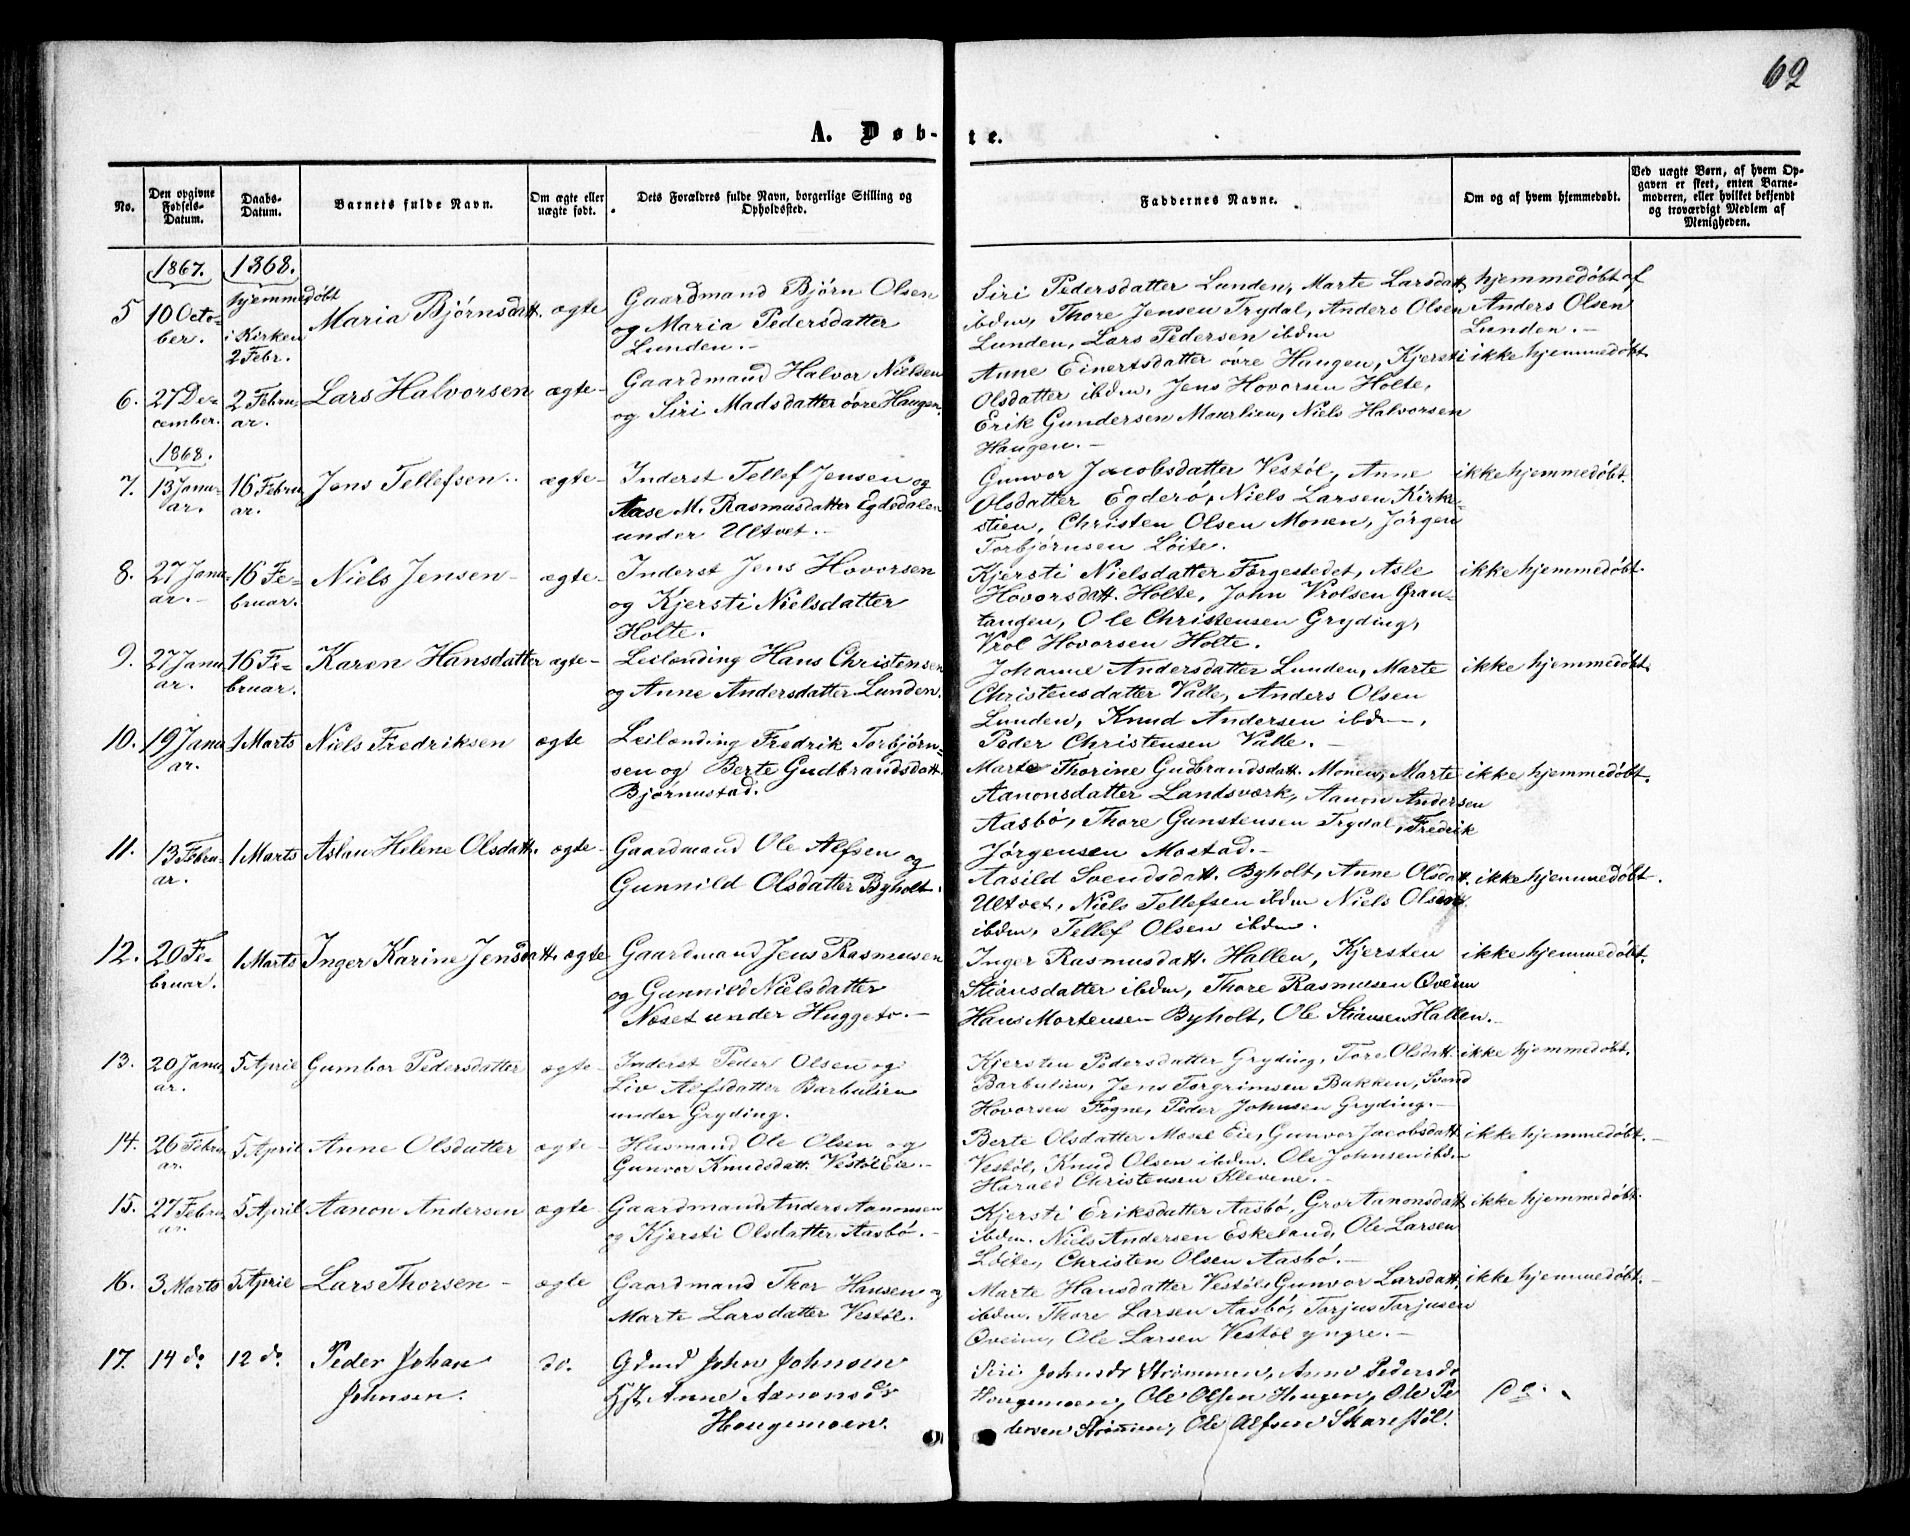 62
A. Døb-te.
No.
Den opgivne Fødsels-Datum.
Daabs-Datum.
Barnets fulde Navn.
Om ægte eller uægte født.
Dets Forældres fulde Navn, borgerlige Stilling og Opholdssted.
Faddernes Navne.
Om og af hvem hjemmedøbt.
Ved uægte Børn, af hvem Opgaven er skeet, enten Barnemoderen, eller hvilket bekjendt og troværdigt Medlem af Menigheden.
1867. 1868.
5 10 Octo-ber. hjemmedøbt i Kirken 2 Febr. Maria Bjørnsdatt. ægte
Gaardmand Bjørn Olsen
og Maria Pedersdatter
Lunden.-
Siri Pedersdatter Lunden, Marte Larsdatt.
ibdm, Thore Jensen Trydal, Anders Olsen
Lunden, Lars Pedersen ibdm
hjemmedøbt af
Anders Olsen
Lunden.-
6. 27 De-cember. 2 Febru-ar. Lars Halvorsen ægte-
Gaardmand Halvor Nielsen
og Siri Madsdatter øvre Haugen.
Anne Einertsdatter øvre Haugen, Kjersti
Olsdatter ibdm, Jens Hovorsen Holte,
Erik Gundersen Maurlien, Niels Halvorsen
Haugen.-
ikke hjemmedøbt
1868.
7. 13 Janu-ar. 16 Febru-ar. Jens Tellefsen.. ægte-
Inderst Tellef Jensen og
Aase M. Rasmusdatter Egdedalen
under Ultvet.-
Gunvor Jacobsdatter Vestøl, Anne
Olsdatter Egderø, Niels Larsen Kirk-
stien, Christen Olsen Monen, Jørgen
Torbjørnsen Løite.
ikke hjemmedøbt.
8. 27 Janu-ar.- 16 Fe-bruar. Niels Jensen- ægte-
Inderst Jens Hovorsen
og Kjersti Nielsdatter
Holte.
Kjersti Nielsdatter Førgestedet, Asle
Hovorsdatt. Holte, John Vrolsen Gran-
tangen, Ole Christensen Gryding,
Vrol Hovorsen Holte.
ikke hjemmedøbt.
9. 27 Janu-ar. 16 Fe-bruar. Karen Hansdatter ægte-
Leilænding Hans Christensen
og Anne Andersdatter Lunden.
Johanne Andersdatter Lunden, Marte
Christensdatter Valle, Anders Olsen
Lunden, Knud Andersen ibdm,
Peder Christensen Valle.-
ikke hjemmedøbt.
10. 19 Janu-ar. 1 Marts Niels Fredriksen ægte
Leilænding Fredrik Torbjørn-
sen og Berte Gudbrandsdatt.
Bjørnustad.
Marte Thorine Gudbrandsdatt. Monen, Marte
Aanonsdatter Landsværk, Aanon Andersen
Aasbø, Thore Gunstensen Trydal, Fredrik
Jørgensen Mostad.-
ikke hjemmedøbt.
11. 13 Febru-ar. 1 Marts Aslau Helene Olsdatt. ægte-
Gaardmand Ole Alfsen og
Gunnild Olsdatter Byholt.
Aasild Svendsdatt. Byholt, Anne Olsdatt.
Ultvet, Niels Tellefsen ibdm Niels Olsen
ibdm, Tellef Olsen ibdm.
ikke hjemmedøbt.
12. 20 Fe-bruar. 1 Marts Inger Karine Jensdatt. ægte
Gaardmand Jens Rasmusen
og Gunnild Nielsdatter
Næset under Huggeto.-
Inger Rasmusdatt. Hallen, Kjersten
Stiansdatter ibdm, Thore Rasmusen Oveim
Hans Mortensen Byholt, Ole Stiansen Hallen.-
ikke hjemmedøbt.
13. 20 Janu-ar. 5 April Gumbor Pedersdatter ægte-
Inderst Peder Olsen og
Liv Alfsdatter Barbulien
under Gryding.
Kjersten Pedersdatter Gryding, Tore Olsdatt.
Barbulien, Jens Torgrimsen Bakken, Svend
Hovorsen Fogne, Peder Johnsen Gryding.-
ikke hjemmedøbt.
14. 26 Febru-ar. 5 April Anne Olsdatter ægte-
Husmand Ole Olsen og
Gunvor Knudsdatt. Vestøl Eie.-
Berte Olsdatter Mosel Eie, Gunvor Jacobsdatt
Vestøl, Knud Olsen ibdm. Ole Johnsen ibdm
Harald Christensen Klevene.
ikke hjemmedøbt.-
15. 27 Febru-ar. 5 April Aanon Andersen ægte-
Gaardmand Anders Aanonsen
og Kjersti Olsdatter Aasbø.-
Kjersti Eriksdatter Aasbø, Gro Aanonsdatt
ibdm. Niels Andersen Eskeland, Ole Larsen
Løite, Christen Olsen Aasbø.-
ikke hjemmedøbt.
16. 3 Marts 5 April Lars Thorsen- ægte
Gaardmand Thor Hansen og
Marte Larsdatter Vestøl.
Marte Hansdatter Vestøl, Gunvor Larsdatt.
ibdm. Thore Larsen Aasbø, Torjus Torjusen
Oveim, Ole Larsen Vestøl yngre.-
ikke hjemmedøbt.-
17. 14 do 12 do Peder Johan Johnsen. do.
Gdmd John Johnsen
Hst. Anne Aanonsdr
Hougemoen.
Siri Johnsdr Strømmen, Anne Pedersdr
Hougemoen, Ole Olsen Hougen, Ole Pe
dersen Strømmen, Ole Alfsen Skarestøl.